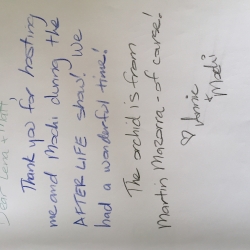 Dear Lena + Matt
Thank you for hosting
me and Mochi during the
AFTER LIFE show! We
had a wonderful time!
The orchid is from
Martin Mazorra - of course!
♡ Jennie
+ Mochi